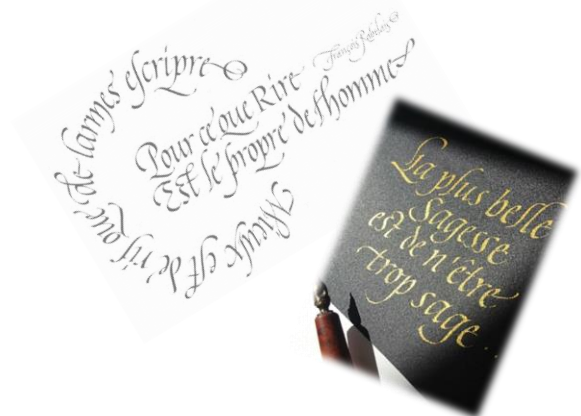 Mieulx est de ris que de larmes escripre
Pour ce que Rire
Est le propre de l'homme
François Rabelais
La plus belle
Sagesse
est de n'être
trop sage...